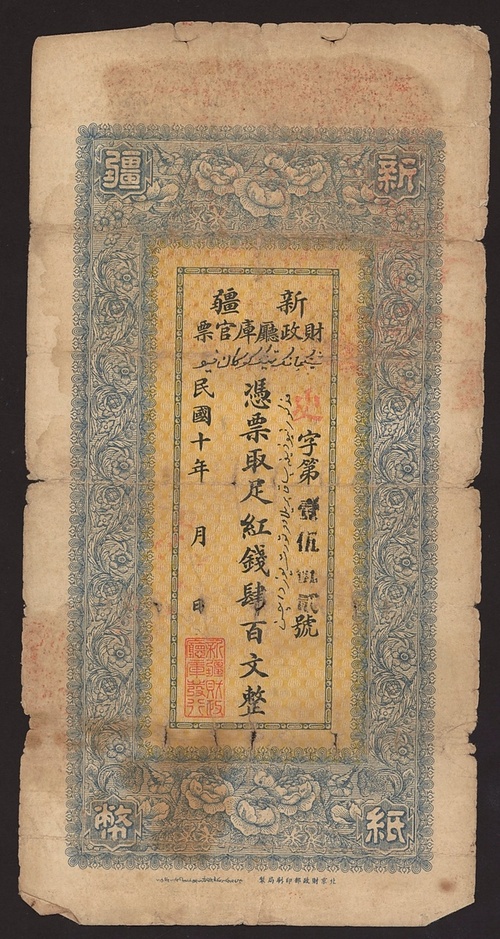 新疆
紙幣
新疆
財政廳庫官票
字第壹伍 貳號
憑票取足紅錢肆百文整
民國十年 月 日
新疆財政
廳庫發行
北京財政部印刷局製